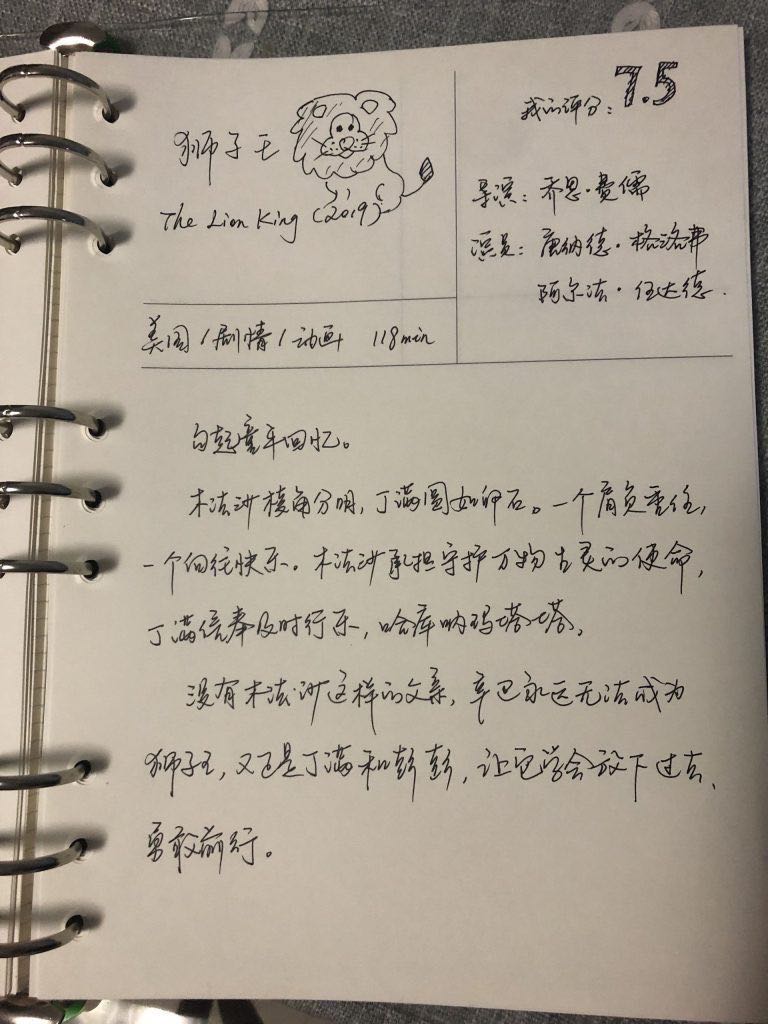 狮子王
The Lion King (2019)
我的评分：7.5
导演：乔恩·费儒
演员：唐纳德·格洛弗
阿尔法·伍达德
美国/剧情/动画 118min
勾起童年回忆。
木法沙棱角分明，丁满圆如卵石。一个肩负重任，
一个向往快乐。木法沙承担守护万物生灵的使命，
丁满信奉及时行乐，哈库呐玛塔塔。
没有木法沙这样的父亲，辛巴永远无法成为
狮子王，又正是丁满和彭彭，让它学会放下过去、
勇敢前行。